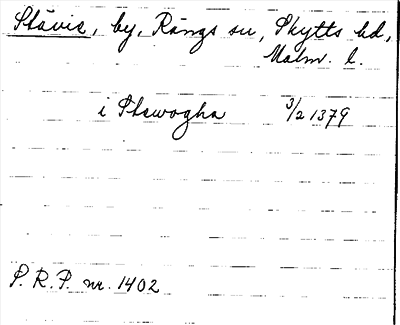 Stävie, by, Rängs sn, Skytts hd,
Malm. l.
i Stawogha 3/2 1379
S. R. P. nr. 1402